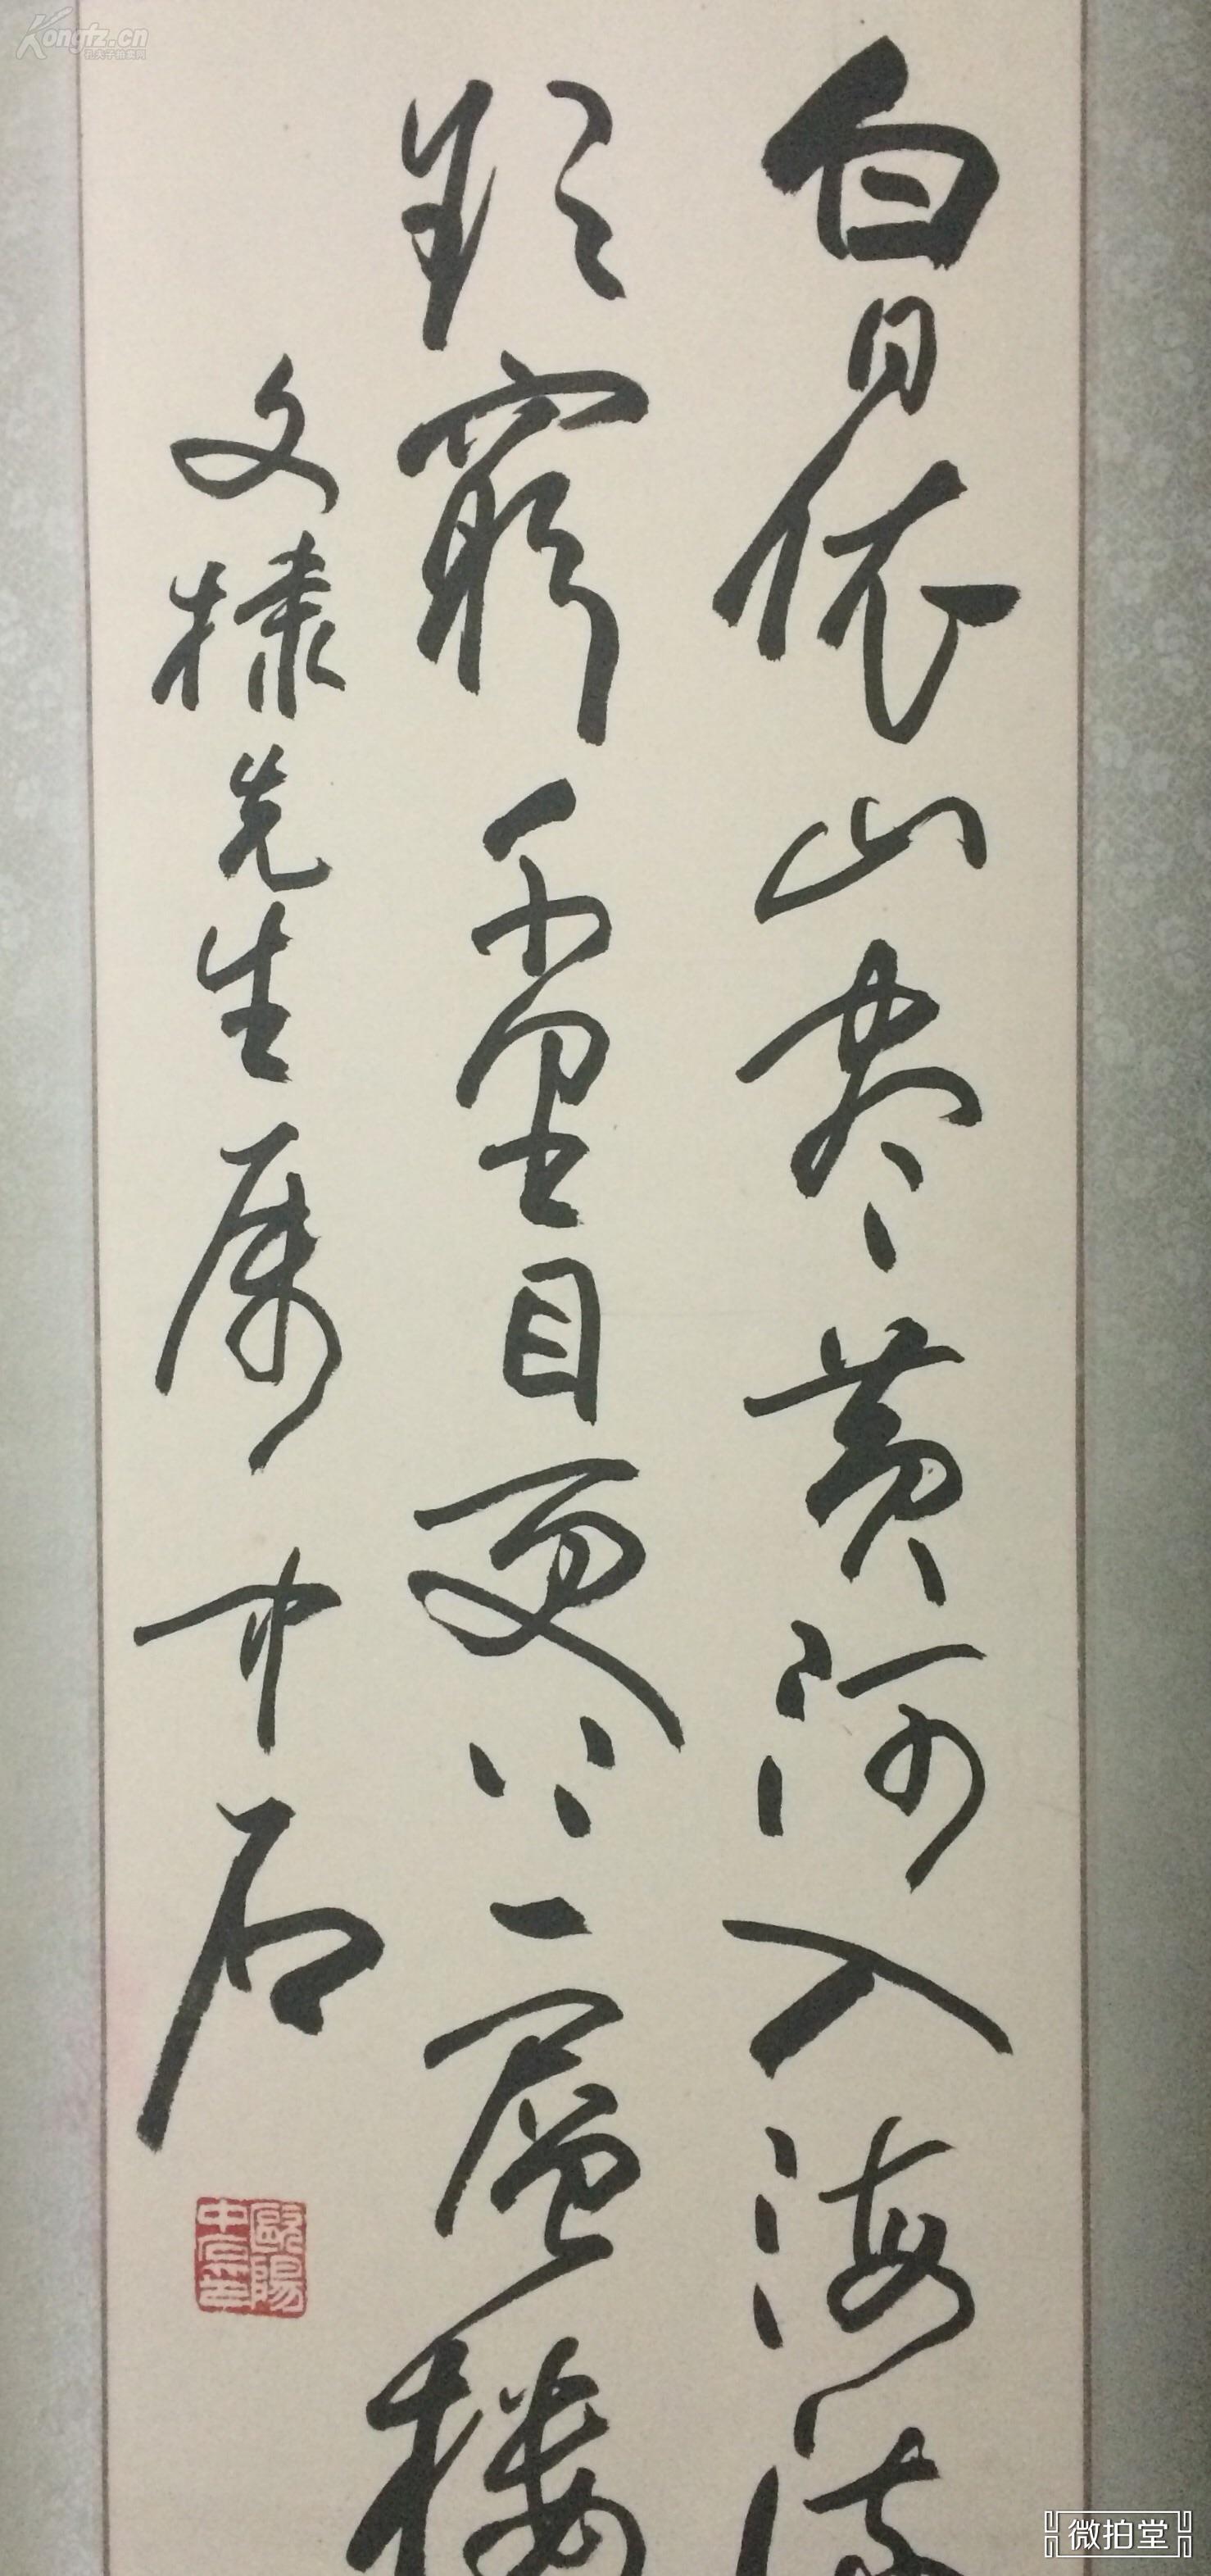 白日依山尽黄河入海流
欲穷千里目更上一层楼
文棣先生属 中石
欧阳中石
Kongfz.cn
孔夫子拍卖网
微拍堂